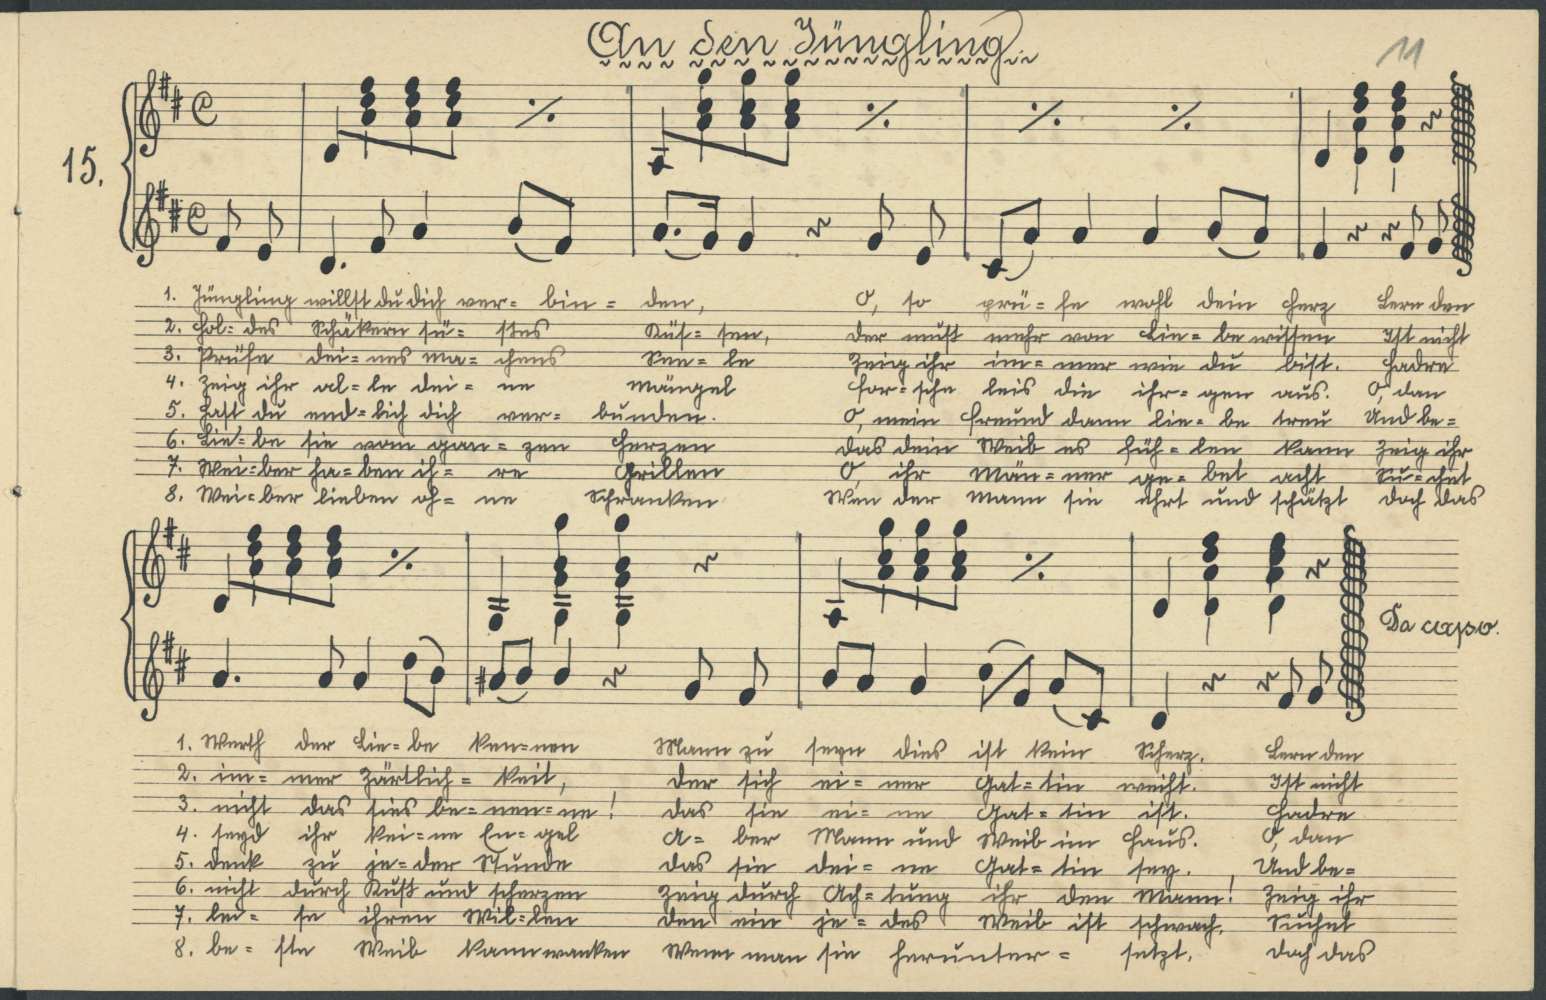 An den Jüngling.
11
15.
1. Jüngling willst du dich ver= bin= den, O, so prü=fe wohl dein Herz Lern den
2. Hol=des Schäkern sü= stes Küs=sen, der muß mehr von Lie=be wissen Ist nicht
3. Prüfe dei=nes Mä=chens See=le Zeig ihr im=mer wie du bist. Hadre
4. Zeig ihr al=le dei= ne Mängel for=sche leis die ihr=gen aus. O, dan
5. Hast du end=lich dich ver= bunden. O, mein Freund dann lie=be treu Und be=
6. Lie=be sie vom gan=zen Herzen das dein Weib es füh=len kann Zeig ihr
7. Wei=ber ha=ben ih= re Grillen O, ihr Män=ner ge=bet acht Su=chet
8. Wei=ber lieben oh= ne Schranken Wen der Mann sie ehrt und schätzt doch das
Da capo.
1. Werth der Lie=be ken=nen Mann zu seyn dies ist kein Scherz. Lern den
2. im= mer Zärtlich= keit, der sich ei= ner Gat=tin weiht. Ist nicht
3. nicht das sies be=nen=ne! das sie ei= ne Gat=tin ist. Hadre
4. seyd ihr kei=ne En=gel A= ber Mann und Weib im Haus. O, dan
5. denk zu je=der Stunde das sie dei= ne Gat=tin sey. Und be=
6. nicht durch Kuß und scherzen Zeig durch Ach=tung ihr den Mann! Zeig ihr
7. lei= se ihren Wil=len den ein je=des Weib ist schwach. Suchet
8. be= ste Weib kann wanken Wenn man sie herunter= setzt. doch das